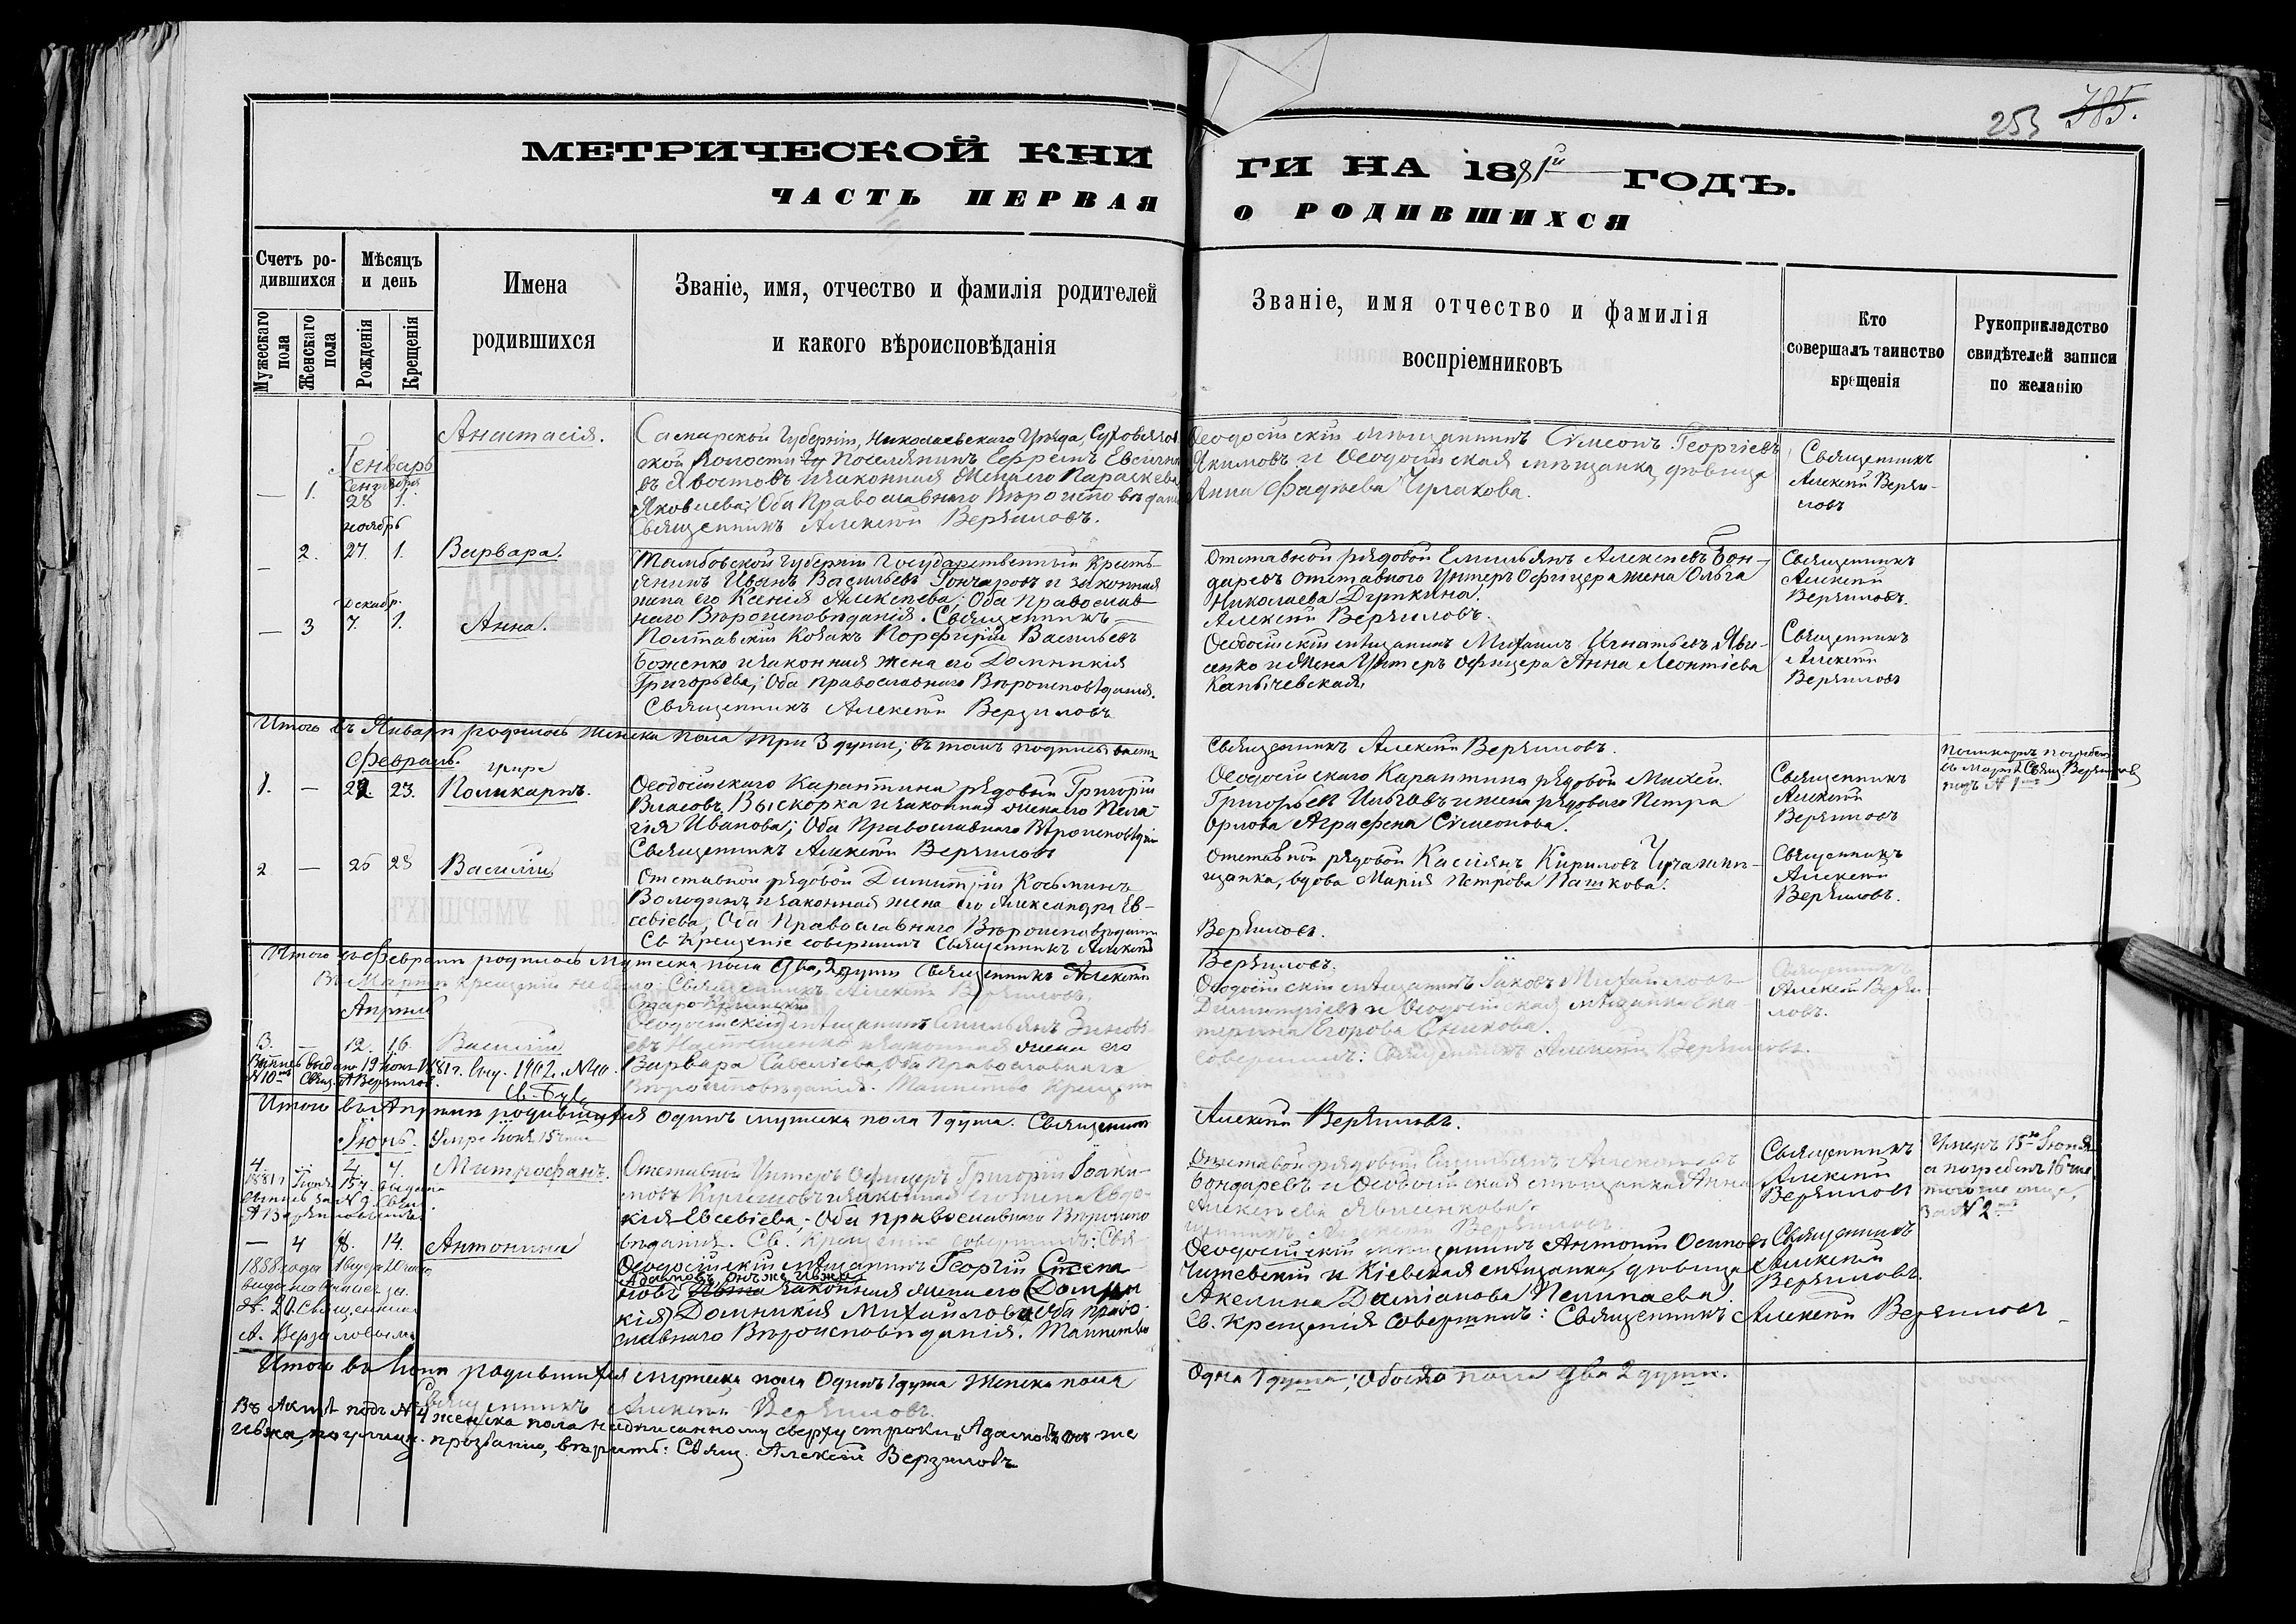 253 385.
МЕТРИЧЕСКОЙ КНИ
ГИ НА 1881й ГОДЪ.
ЧАСТЬ ПЕРВАЯ
О РОДИВШИХСЯ
Счетъ ро-
дившихся
Мужескаго
пола
Женскаго
пола
Мѣсяцъ
и день
Рожденія
Крещенія
Имена
родившихся
Званіе, имя, отчество и фамилія родителей
и какого вѣроисповѣданія
Званіе, имя отчество и фамилія
воспріемниковъ
Кто
совершалъ таинство
крещенія
Рукоприкладство
свидѣтелей записи
по желанію
Генварь
— 1. 28 1.
Анастасія.
Самарской Губерніи, Николаевскаго Уѣзда,
Волости Поселянинъ Ефремъ
законная Жена его Параскева
Яковлева; Оба Православнаго Вѣроисповѣданія
Священникъ Алексѣй Верзиловъ.
Ѳеодосійскій мѣщанинъ Сѵмеонъ Георгіевъ
Якимовъ и Ѳеодосійская мѣщанка дѣвица
Анна Фадѣева
Священникъ
Алексѣй Верзи-
ловъ
ноябрь
— 2. 27. 1.
Варвара.
Тамбовской Губерніи Государственный Кресть-
янинъ Иванъ Васильевъ Гончаровъ и законная
жена его Ксенія Алексѣева; Оба Православ-
наго Вѣроисповѣданія. Священникъ
Отставной рядовой Емильянъ Алексѣевъ Бон-
даревъ отставного Унтеръ Офицера жена Ольга
Николаева
Алексѣй Верзиловъ.
Священникъ
Алексѣй
Верзиловъ.
декабр.
— 3 7. 1.
Анна.
Полтавскій Козакъ Порфирій Васильевъ
Боженко и законная жена его Домникія
Григорьева; Оба православнаго Вѣроисповѣданія.
Священникъ Алексѣй Верзиловъ
Ѳеодосійскій мѣщанинъ Михаилъ Игнатьевъ
и Жена Унтеръ офицера Анна Леонтіева
Священникъ
Алексѣй
Верзиловъ
Итого въ Январѣ родилось женска пола три 3 души;
Священникъ Алексѣй Верзиловъ.
Февраль.
умре
1. — 22 23.
Поликарпъ.
Ѳеодосійскаго Карантина рядовый Григорій
Власовъ Выскорка и законная жена его Пела-
гія Иванова; Оба Православнаго Вѣроисповѣданія
Священникъ Алексѣй Верзиловъ
Ѳеодосійскаго Карантина рядовой Михей
Григорьевъ и жена рядового Петра
Орлова Аграфена Сѵмеонова.
Священникъ
Алексѣй
Верзиловъ
Поликарпъ погребенъ
въ Мартѣ Свящ. Верзиловъ
подъ № 1мъ
2 — 25 28
Василій
Отставной рядовой Димитрій Косьминъ
Володинъ и законная жена его Александра Ев-
севіева, Оба Православнаго Вѣроисповѣданія
Св Крещеніе совершилъ Священникъ Алексѣй
Отставной рядовой Касіянъ Кириловъ
щанка, вдова Марія Петрова Пашкова.
Верзиловъ.
Священникъ
Алексѣй
Верзиловъ.
Итого въ Февралѣ родилось Мужеска пола два, 2 души Священникъ Алексѣй
Верзиловъ.
Въ Мартѣ крещенія не было: Священникъ Алексѣй Верзиловъ.
Апрѣль
3. — 12. 16.
Василій
Ѳеодосійскій мѣщанинъ Емильянъ Зиновь-
евъ законная жена его
Варвара Савеліева, Оба Православнаго
Вѣроисповѣданія. Таинство Крещенія
Ѳеодосійскій мѣщанинъ Іаковъ Михайловъ
Димитріевъ и Ѳеодосійская мѣщанка Ека-
терина Егорова
совершилъ: Священникъ Алексѣй Верзиловъ.
Священникъ
Алексѣй Верзи-
ловъ.
Итого въ Апрѣлѣ родившихся одинъ мужска пола 1 душа. Священникъ
Алексѣй Верзиловъ.
Іюнь.
Умре Іюня 15 числа
4. — 4. 7.
Митрофанъ.
Отставной Унтеръ Офицеръ Григорій Іоаки-
мовъ и законная его жена Евдо-
кія Евсевіева, Оба православнаго Вѣроиспо-
вѣданія. Св. Крещеніе совершилъ: Свя-
Отставной рядовой Емильянъ Алексѣевъ
Бондаревъ и Ѳеодосійская мѣщанка Анна
Алексѣева
щенникъ Алексѣй Верзиловъ.
Священникъ
Алексѣй
Верзиловъ
Умеръ 15го Іюня
и погребенъ 16 числа
того же мѣсяца,
За № 2мъ
— 4 8. 14.
Антонина
Ѳеодосійскій мѣщанинъ Георгій Степа-
Адамовъ, онъ же Ивжа
новъ законная жена его
Домникія Михайлова Оба право-
славнаго Вѣроисповѣданія. Таинство
Ѳеодосійскій мѣщанинъ Антоній Осиповъ
и Кіевская мѣщанка, дѣвица
Акелина Даміанова
Св. Крещенія совершилъ: Священникъ Алексѣй Верзиловъ
Священникъ
Алексѣй
Верзиловъ.
Итого въ Іюнѣ родившихся мужска пола Одинъ 1 душа Женска пола
Одна 1 душа; обоего пола два 2 души.
Священникъ Алексѣй Верзиловъ.
Въ Актѣ подъ № 4 женска пола надписанному сверху строки „Адамовъ он же
Ивжа, по прозванію, вѣрить: Свящ. Алексѣй Верзиловъ